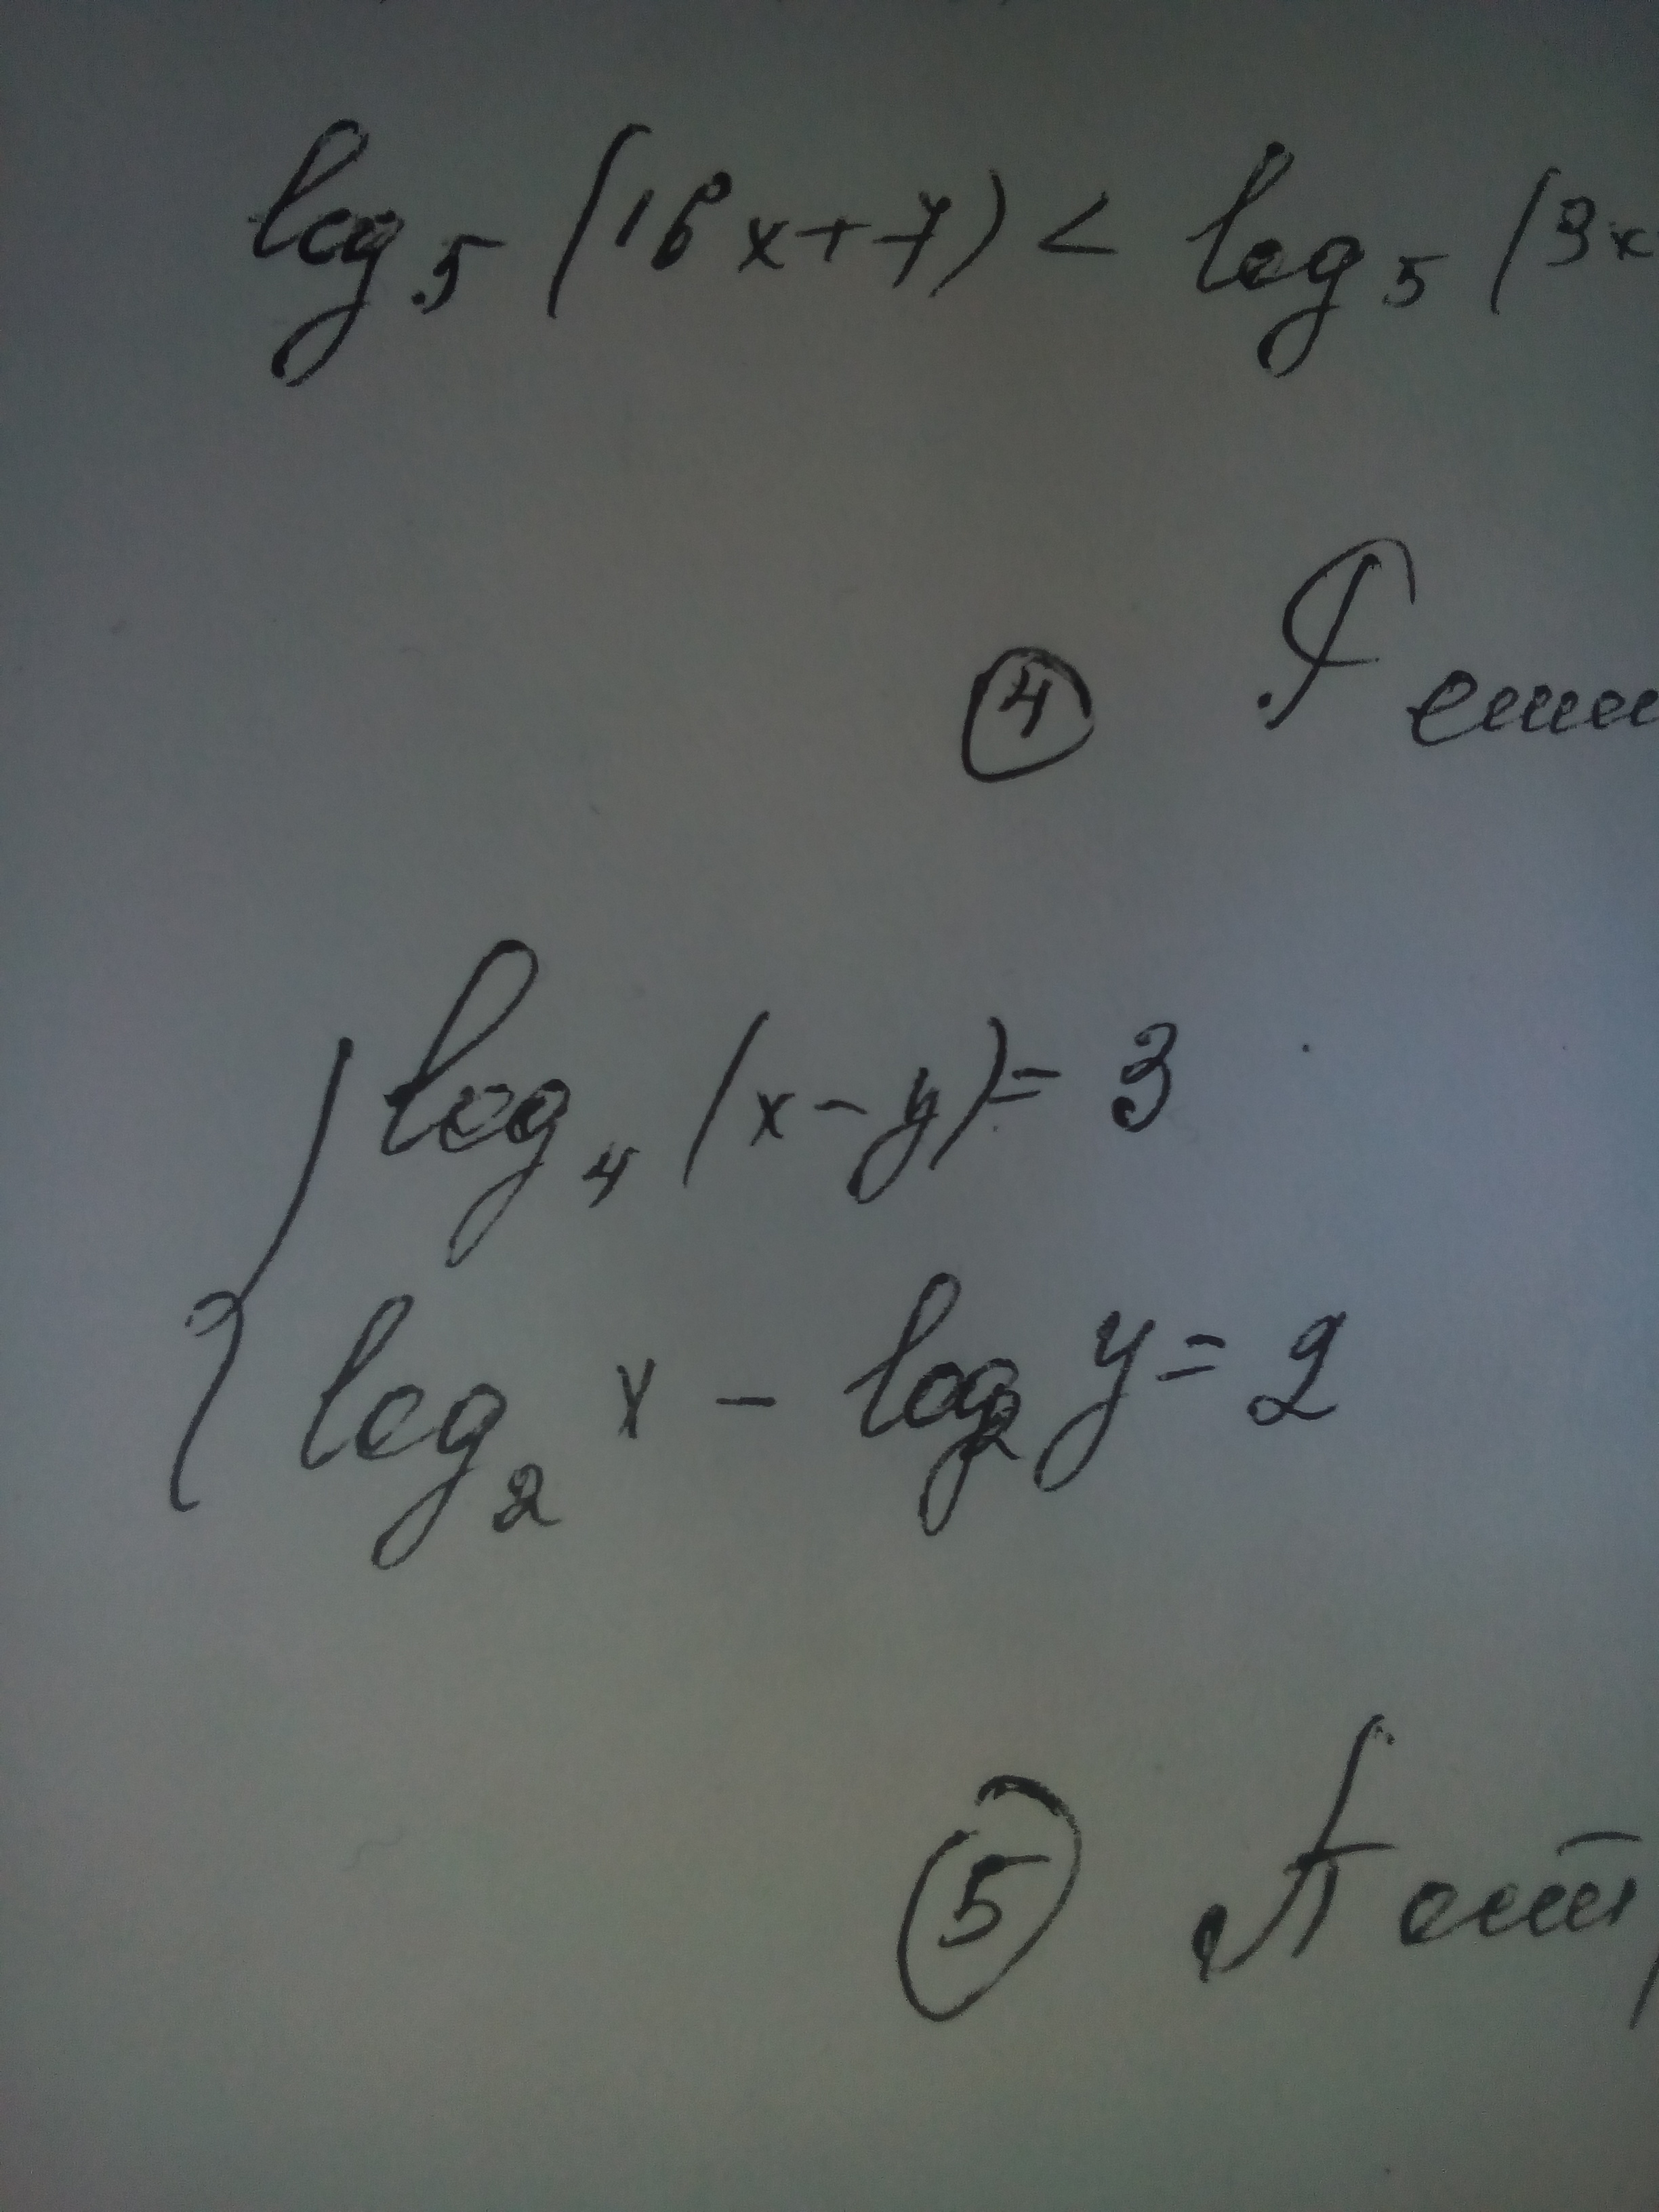 log₅ (16x+7) < log₅ (3x
④ Реши
{ log₄ (x-y) = 3
log₂ x - log₂ y = 2
⑤ Пост